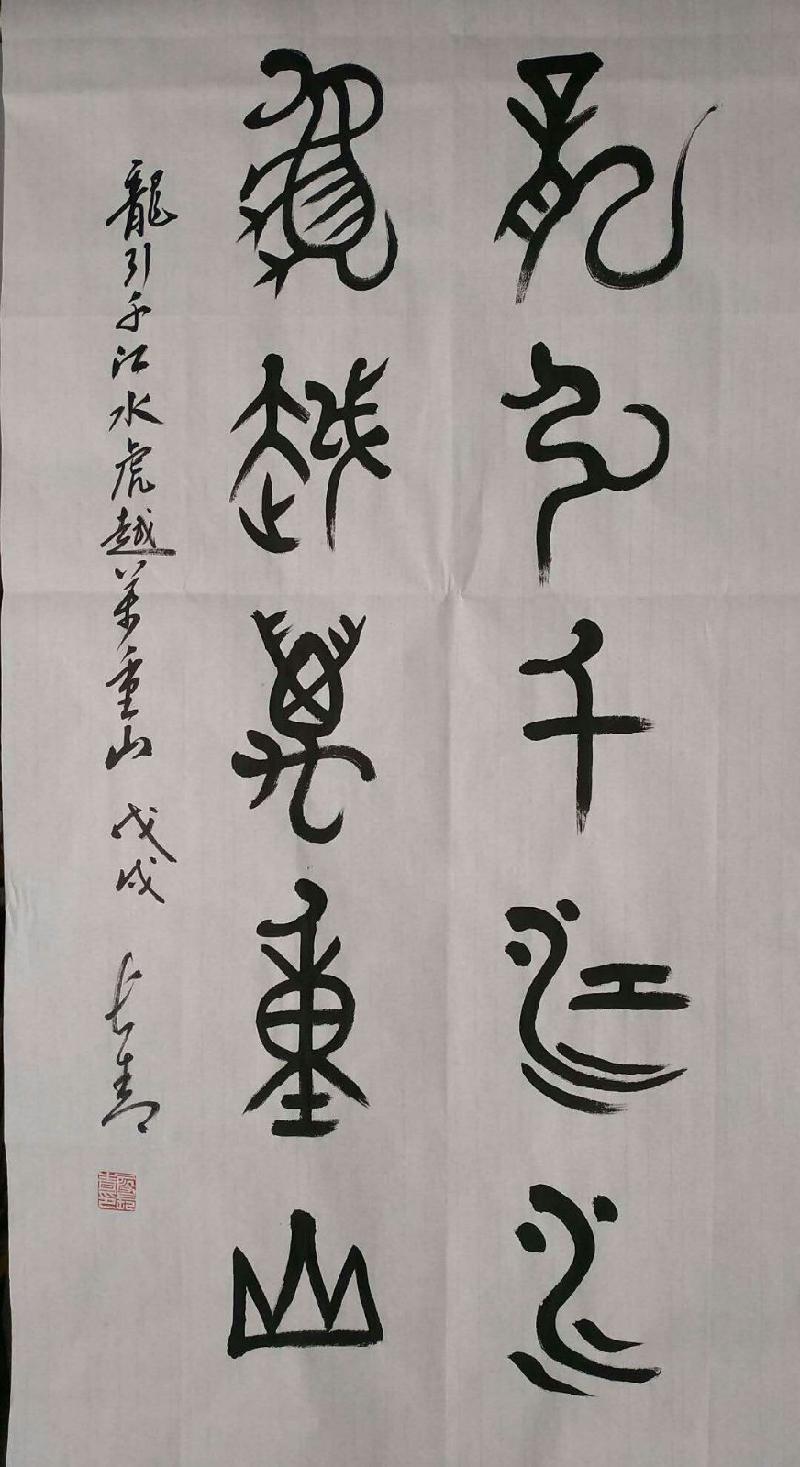 龍引千江水
虎越萬重山
龍引千江水虎越萬重山 戊戌 長青